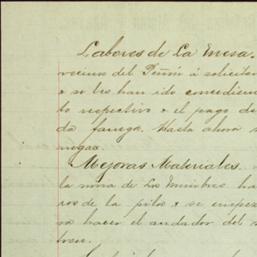 Labores de La Mesa.
vecinos del Peñón á solicitar
x se les han ido concediendo
to respectivo x el pago de
da fanega. Hasta ahora
negas.
Mejoras Materiales.
la noria de Los Mimbres ha
ros de la pila x se empez
ra hacer el andador del
breu.